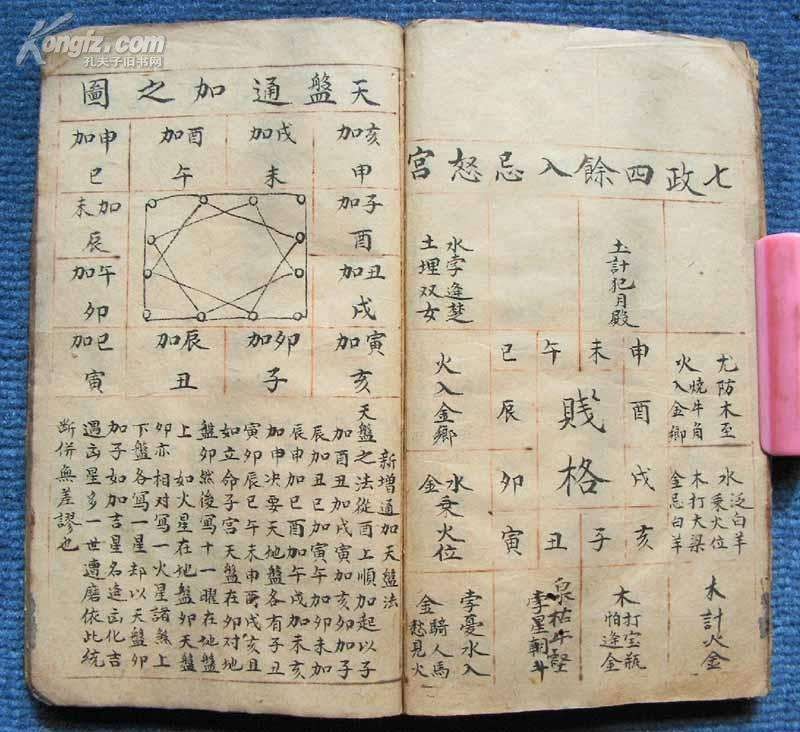 Kongfz.com
孔夫子旧书网
七政四餘入忌怒宮
土計犯月殿
水孛逢楚
土埋双女
申未午巳
尤防木至
火燒牛角
入金鄉
酉
賤格
辰
火入金鄉
水泛白羊
木乘火位
木打大梁
金忌白羊
戌
卯
水乘火位
金
亥子丑寅
木計火金
木打宝瓶
怕逢金
泉枯牛
孛星朝斗
孛憂水入
金騎人馬
愁見火
天盤通加之圖
亥加甲
戌加未
酉加午
申加巳
子加酉
未加辰
丑加戌
午加卯
寅加亥
卯加子
辰加丑
巳加寅
新增通加天盤法
天盤之法從酉上順加起以子
加酉丑加戌寅加亥卯加子
辰加丑巳加寅午加卯未加
辰申加巳酉加午戌加未亥
加申決要天地盤各有子丑
寅卯辰巳午未申酉戌亥且
如立命子宮天盤在卯对地
盤卯然後寫十一曜在地盤
上如火星在地盤卯天盤
卯亦相对寫一火星諸煞上
下盤各寫一星却以天盤卯
加子如加吉星名逢凶化吉
遇凶星多一世遭磨依此統
断併無差謬也